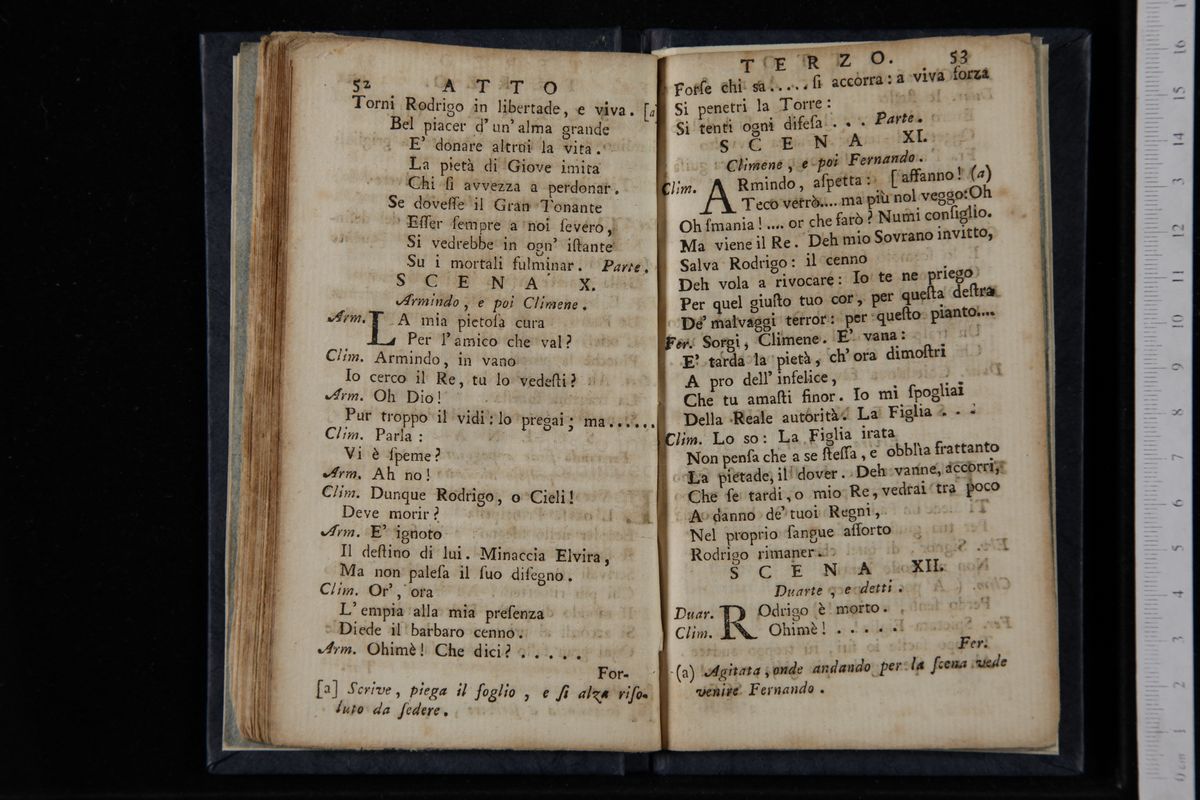 52 ATTO
Torni Rodrigo in libertade, e viva. [a]
Bel piacer d'un'alma grande
E' donare altrui la vita.
La pietà di Giove imita
Chi ſi avvezza a perdonar.
Se doveſſe il Gran Tonante
Eſſer ſempre a noi ſevero,
Si vedrebbe in ogn' iſtante
Su i mortali fulminar. Parte.
SCENA X.
Armindo, e poi Climene.
Arm. LA mia pietoſa cura
Per l'amico che val?
Clim. Armindo, in vano
Io cerco il Re, tu lo vedeſti?
Arm. Oh Dio!
Pur troppo il vidi: lo pregai; ma......
Clim. Parla:
Vi è ſpeme?
Arm. Ah no!
Clim. Dunque Rodrigo, o Cieli!
Deve morir?
Arm. E' ignoto
Il deſtino di lui. Minaccia Elvira,
Ma non paleſa il ſuo diſegno.
Clim. Or', ora
L'empia alla mia preſenza
Diede il barbaro cenno.
Arm. Ohimè! Che dici? . . . . .
For-
[a] Scrive, piega il foglio, e ſi alza riſo-
luto da ſedere.
TERZO. 53
Forſe chi sa..... ſi accorra: a viva forza
Si penetri la Torre:
Si tenti ogni difeſa . . . Parte.
SCENA XI.
Climene, e poi Fernando.
Clim. ARmindo, aſpetta: [affanno! (a)
Teco verrò.... ma più nol veggo: Oh
Oh ſmania! .... or che farò? Numi conſiglio.
Ma viene il Re. Deh mio Sovrano invitto,
Salva Rodrigo: il cenno
Deh vola a rivocare: Io te ne priego
Per quel giuſto tuo cor, per queſta deſtra
De' malvaggi terror: per queſto pianto....
Fer. Sorgi, Climene. E' vana:
E' tarda la pietà, ch'ora dimoſtri
A pro dell'infelice,
Che tu amaſti finor. Io mi ſpogliai
Della Reale autorità. La Figlia . . .
Clim. Lo so: La Figlia irata
Non penſa che a se ſteſſa, e obblìa frattanto
La pietade, il dover. Deh vanne, accorri,
Che ſe tardi, o mio Re, vedrai tra poco
A danno de' tuoi Regni,
Nel proprio ſangue aſſorto
Rodrigo rimaner.
SCENA XII.
Duarte, e detti.
Duar. ROdrigo è morto.
Clim. Ohimè! . . . . .
Fer.
(a) Agitata, onde andando per la ſcena vede
venire Fernando.